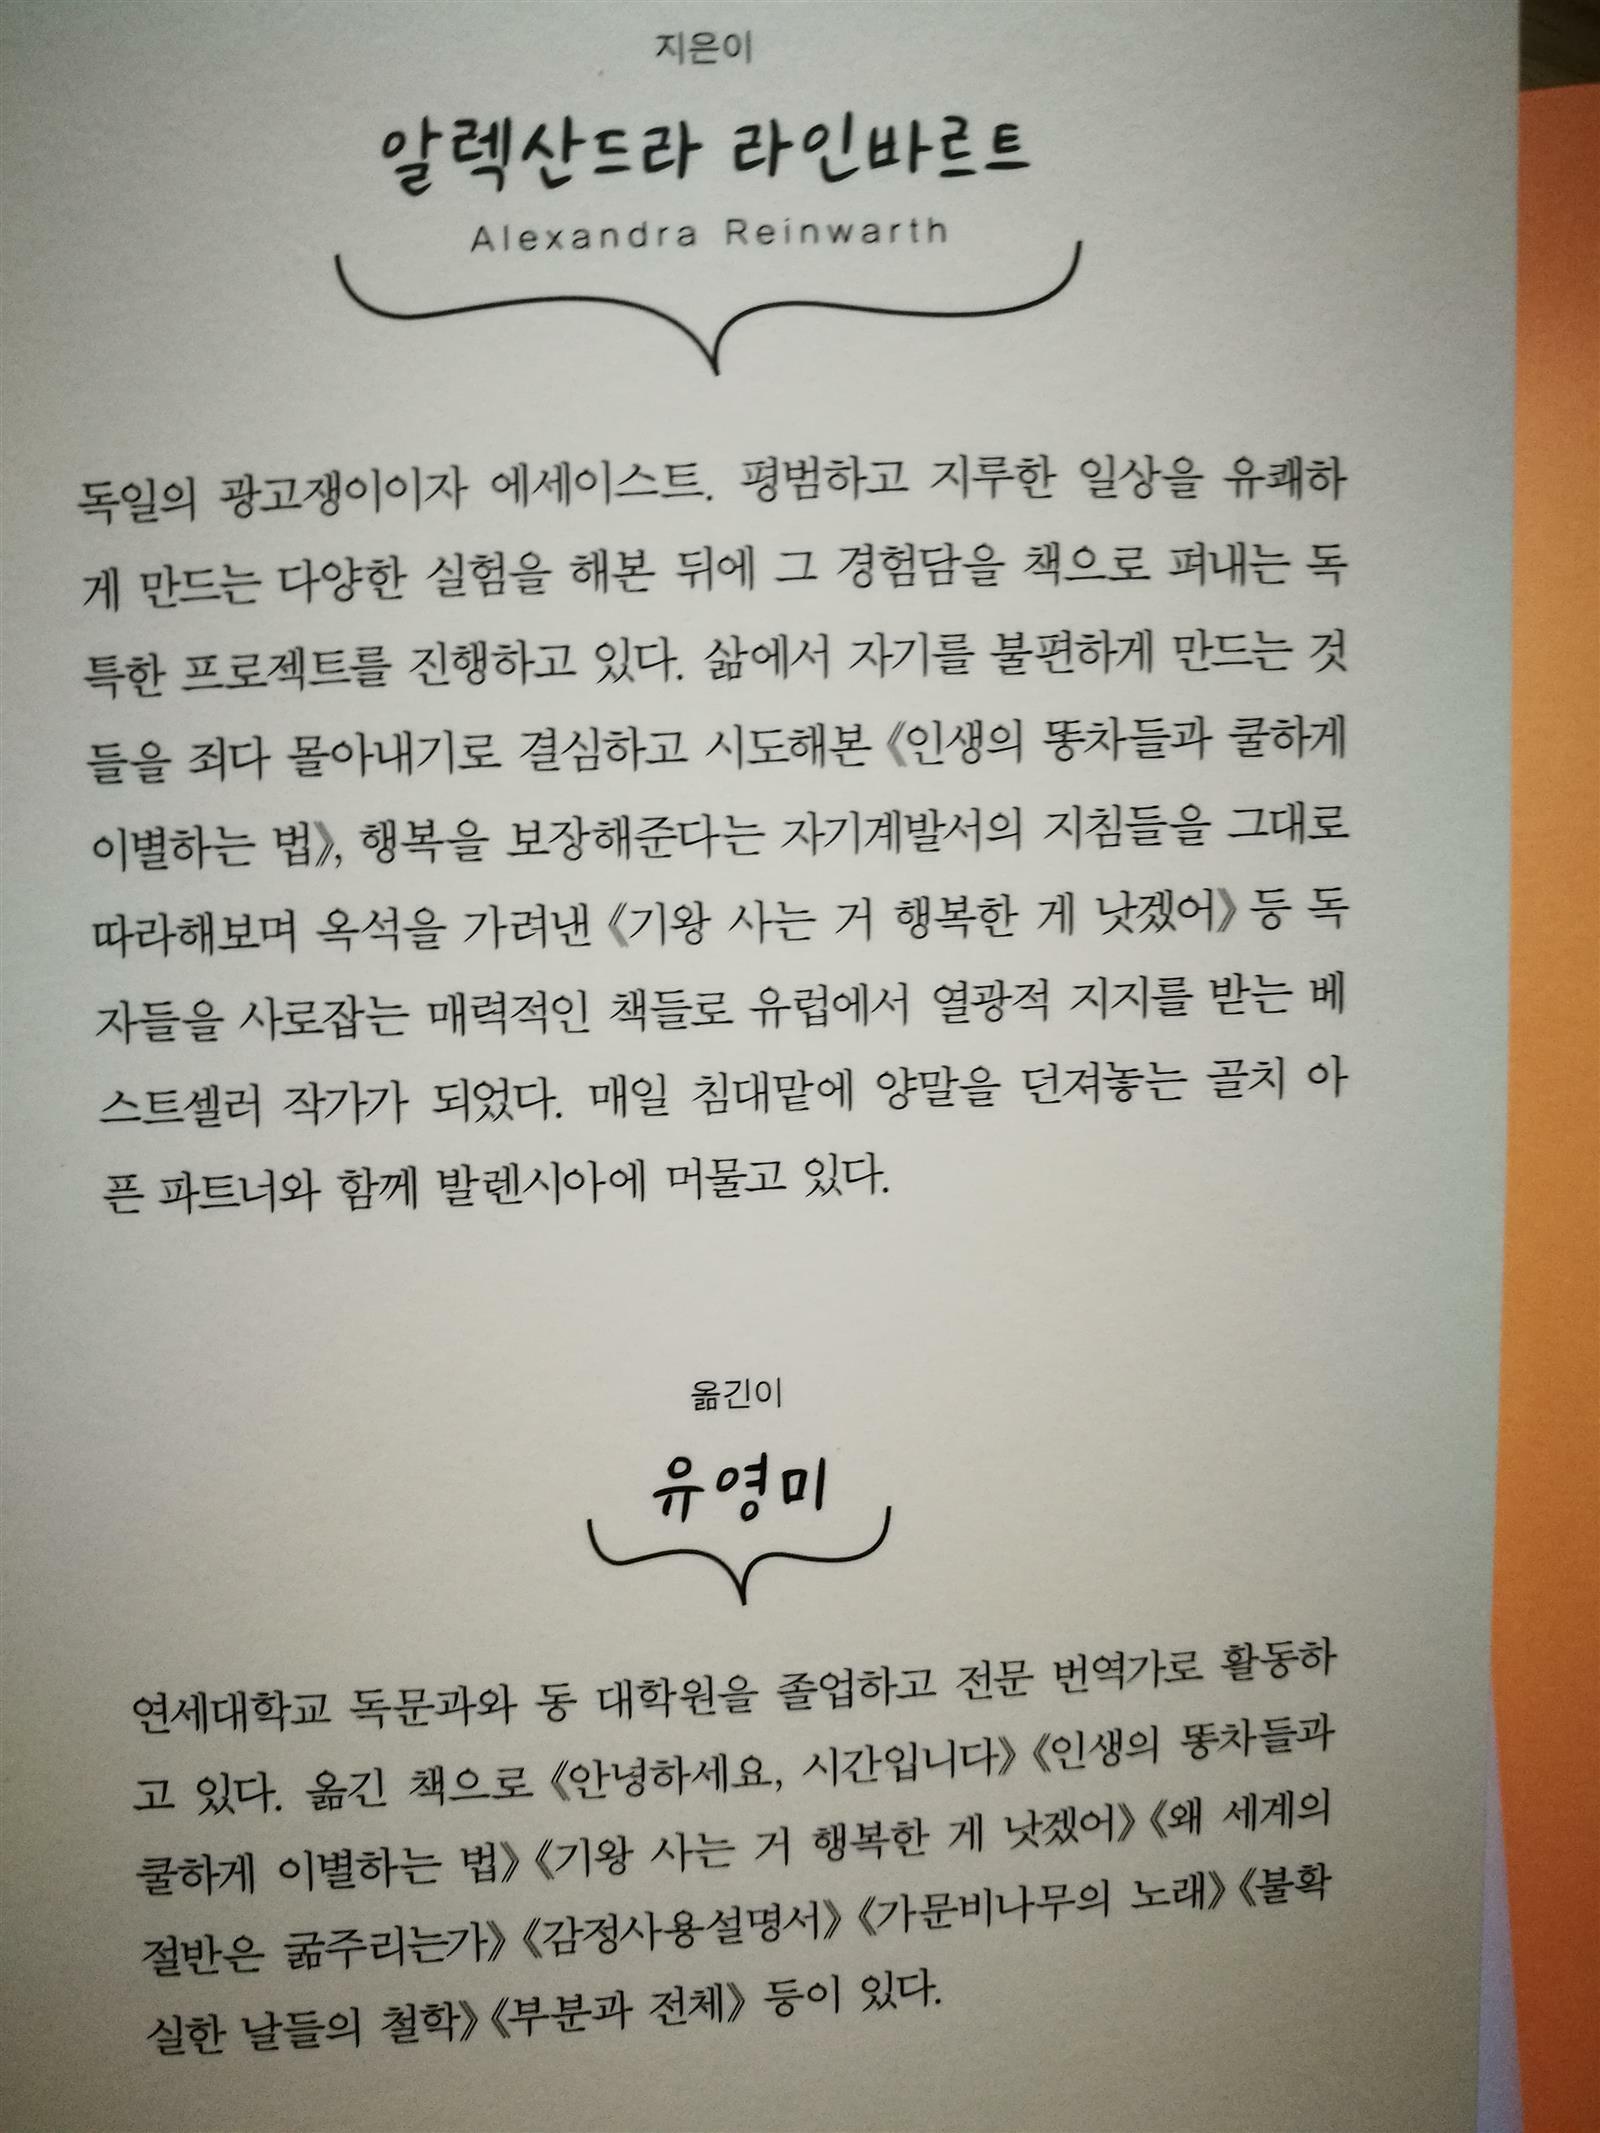 지은이
알렉산드라 라인바르트
Alexandra Reinwarth
독일의 광고쟁이이자 에세이스트. 평범하고 지루한 일상을 유쾌하
게 만드는 다양한 실험을 해본 뒤에 그 경험담을 책으로 펴내는 독
특한 프로젝트를 진행하고 있다. 삶에서 자기를 불편하게 만드는 것
들을 죄다 몰아내기로 결심하고 시도해본 《인생의 똥차들과 쿨하게
이별하는 법》, 행복을 보장해준다는 자기계발서의 지침들을 그대로
따라해보며 옥석을 가려낸 《기왕 사는 거 행복한 게 낫겠어》 등 독
자들을 사로잡는 매력적인 책들로 유럽에서 열광적 지지를 받는 베
스트셀러 작가가 되었다. 매일 침대맡에 양말을 던져놓는 골치 아
픈 파트너와 함께 발렌시아에 머물고 있다.
옮긴이
유영미
연세대학교 독문과와 동 대학원을 졸업하고 전문 번역가로 활동하
고 있다. 옮긴 책으로 《안녕하세요, 시간입니다》 《인생의 똥차들과
쿨하게 이별하는 법》 《기왕 사는 거 행복한 게 낫겠어》 《왜 세계의
절반은 굶주리는가》 《감정사용설명서》 《가문비나무의 노래》 《불확
실한 날들의 철학》 《부분과 전체》 등이 있다.